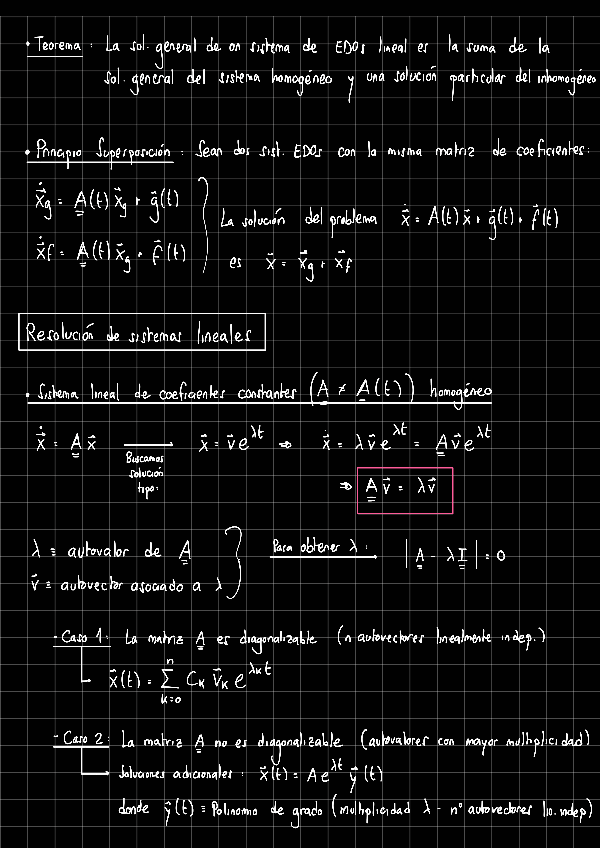 • Teorema : La sol. general de un sistema de EDOs lineal es la suma de la
sol. general del sistema homogéneo y una solución particular del inhomogéneo
• Principio Superposición : Sean dos sist. EDOs con la misma matriz de coeficientes:
ẋ⃗g = A(t) x⃗g + g⃗(t)
La solución del problema ẋ⃗ = A(t) x⃗ + g⃗(t) + f⃗(t)
ẋ⃗f = A(t) x⃗g + f⃗(t)
es x⃗ = x⃗g + x⃗f
Resolución de sistemas lineales
• Sistema lineal de coeficientes constantes (A ≠ A(t)) homogéneo
ẋ⃗ = A x⃗ → x⃗ = v⃗ e^λt ⇒ ẋ⃗ = λ v⃗ e^λt = A v⃗ e^λt
Buscamos
solución
tipo:
⇒ A v⃗ = λ v⃗
λ ≡ autovalor de A
Para obtener λ : |A - λI| = 0
v⃗ ≡ autovector asociado a λ
- Caso 1: La matriz A es diagonalizable (n autovectores linealmente indep.)
x⃗(t) = Σ_{k=0}^{n} C_k v⃗_k e^{λ_k t}
- Caso 2: La matriz A no es diagonalizable (autovalores con mayor multiplicidad)
Soluciones adicionales : x⃗(t) = A e^λt y⃗(t)
donde y⃗(t) ≡ Polinomio de grado (multiplicidad λ - nº autovectores lin. indep)